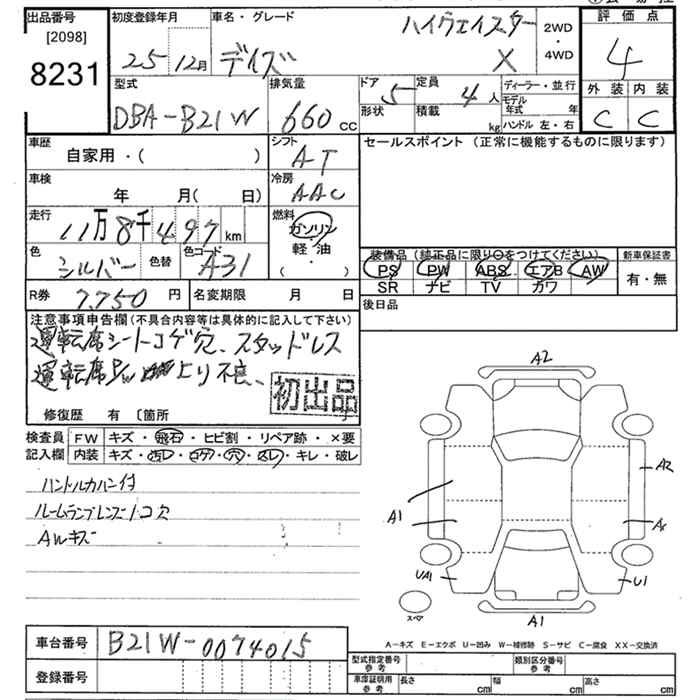 出品番号 初度登録年月 車名・グレード ハイウェイスター 2WD・4WD 評価点
[2098]
8231 25 12月 デイズ X 4
型式 排気量 ドア 5 定員 4人 ディーラー・並行 外装 内装
DBA-B21W 660cc 形状 積載 kg モデル年式 年 C C
ハンドル 左・右
車歴 シフト セールスポイント (正常に機能するものに限ります)
自家用・( ) AT
車検 冷房
年 月( 日) AAC
走行 燃料
11万8千497km ガソリン
軽・油
( ・ )
色 シルバー 色替 色コード A31
装備品 (純正品に限り○をつけてください) 新車保証書
PS PW ABS エアB AW 有・無
SR ナビ TV カワ
R券 7,750円 名変期限 月 日 後日品
注意事項申告欄(不具合内容等は具体的に記入して下さい)
運転席シートコゲ穴、スタッドレス
運転席P/W 上り不良、
初出品
修復歴 有 〔箇所
検査員 FW キズ・飛石・ヒビ割・リペア跡・×要
記入欄 内装 キズ・汚レ・コゲ・穴・スレ・キレ・破レ
ハンドルカバー付
ルームランプレンズ欠
AWキズ
A2
A2
A1
UA1
U1
スペア
A1
A-キズ E-エクボ U-凹み W-補修跡 S-サビ C-腐食 XX-交換済
車台番号 B21W-0074015
登録番号
型式指定番号 参考 類別区分番号 参考
車庫証明 参考 長さ cm 幅 cm 高さ cm